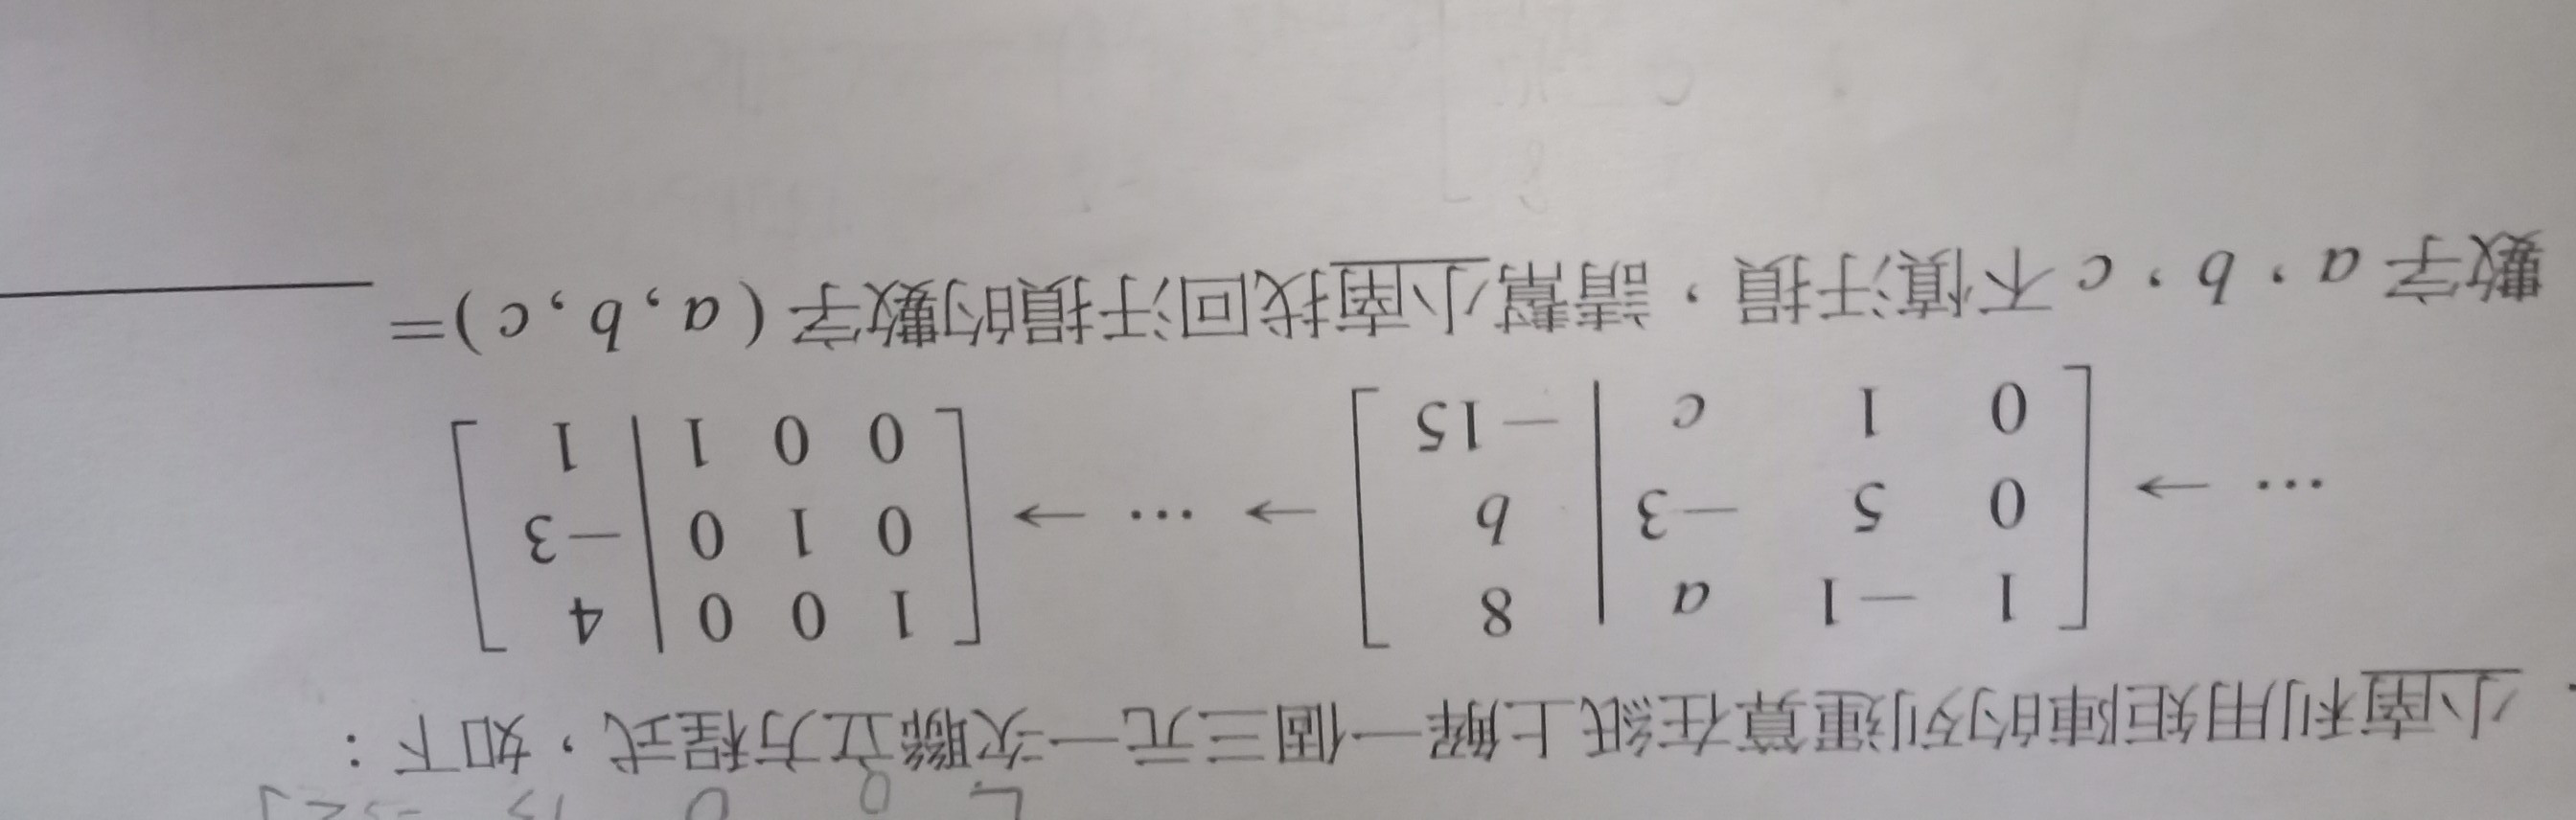 小南利用矩陣的列運算在紙上解一個三元一次聯立方程式，如下：
… → [ 1 −1 a | 8 ] → … → [ 1 0 0 | 4 ]
[ 0 5 −3 | b ] [ 0 1 0 | −3 ]
[ 0 1 c | −15 ] [ 0 0 1 | 1 ]
數字 a，b，c 不慎汙損，請幫小南找回汙損的數字 ( a , b , c ) = ______